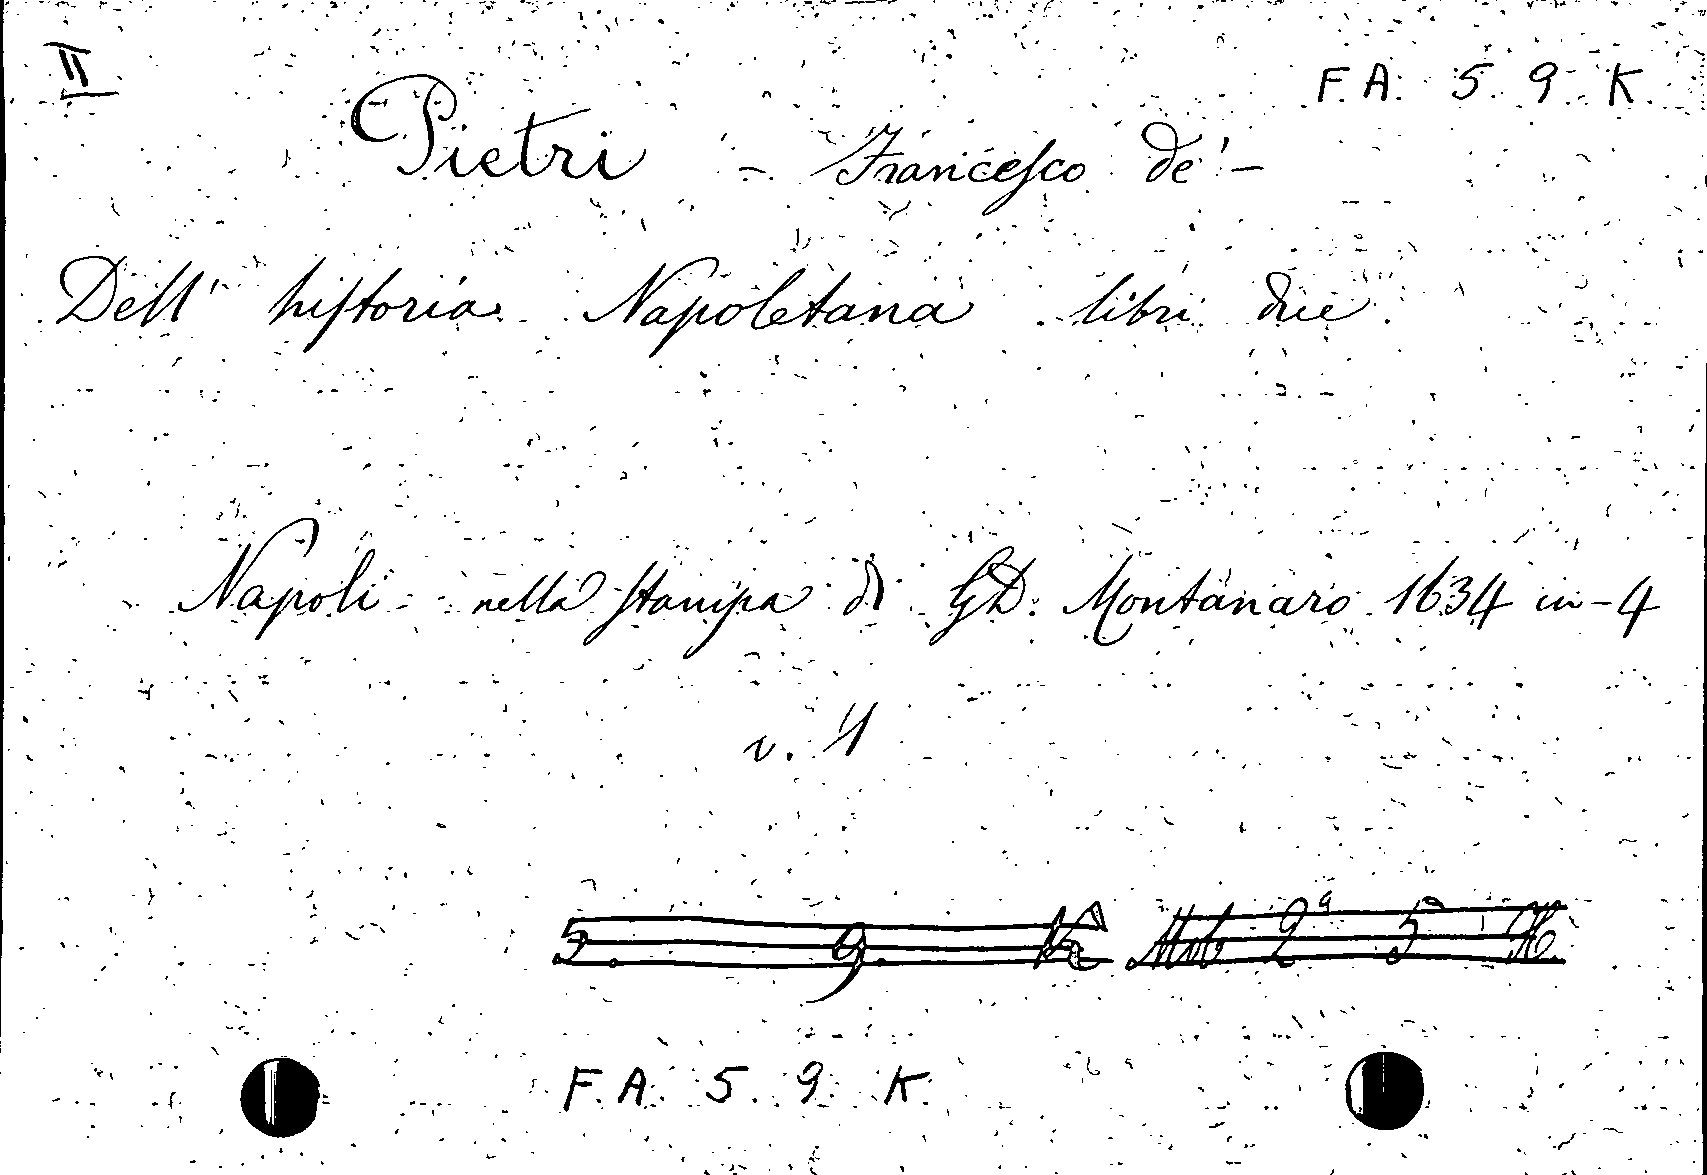 II
F. A. 5. 9. K.
Pietri - Francesco de' -
Dell' historia Napoletana libri due
Napoli nella stampa di G.D. Montanaro 1634 in-4
v. 1
5. 9. K Mob 2ª 5 K.
F. A. 5. 9. K.